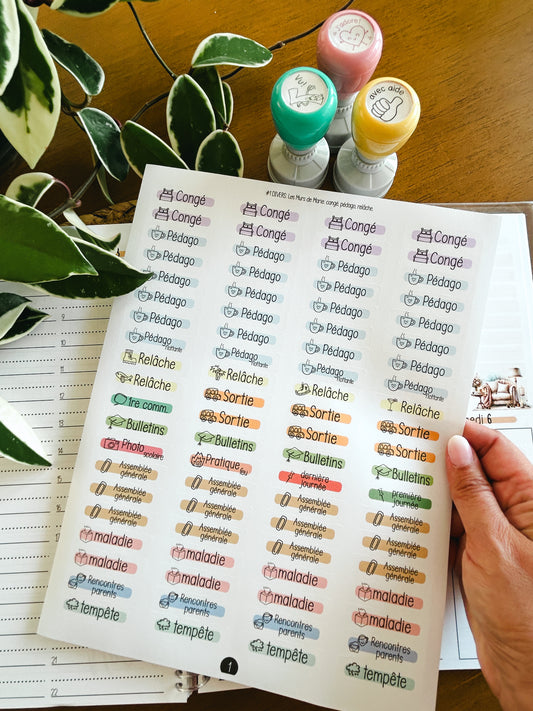 J'adore!
Vu!
avec aide
#1 DIVERS. Les Murs de Marie: congé, pédago, relâche
Congé
Congé
Pédago
Pédago
Pédago
Pédago
Pédago
Pédago
flottante
Relâche
Relâche
1re comm.
Bulletins
Photo
scolaire
Assemblée
générale
Assemblée
générale
Assemblée
générale
maladie
maladie
Rencontres
parents
tempête
Congé
Congé
Pédago
Pédago
Pédago
Pédago
Pédago
Pédago
flottante
Relâche
Sortie
Sortie
Bulletins
Pratique
feu
Assemblée
générale
Assemblée
générale
Assemblée
générale
maladie
maladie
Rencontres
parents
tempête
Congé
Congé
Pédago
Pédago
Pédago
Pédago
Pédago
Pédago
flottante
Relâche
Sortie
Sortie
Bulletins
dernière
journée
Assemblée
générale
Assemblée
générale
Assemblée
générale
maladie
maladie
Rencontres
parents
tempête
Congé
Congé
Pédago
Pédago
Pédago
Pédago
Pédago
Pédago
flottante
Relâche
Sortie
Sortie
Bulletins
première
journée
Assemblée
générale
Assemblée
générale
Assemblée
générale
maladie
maladie
Rencontres
parents
tempête
1
edi 6
21
22